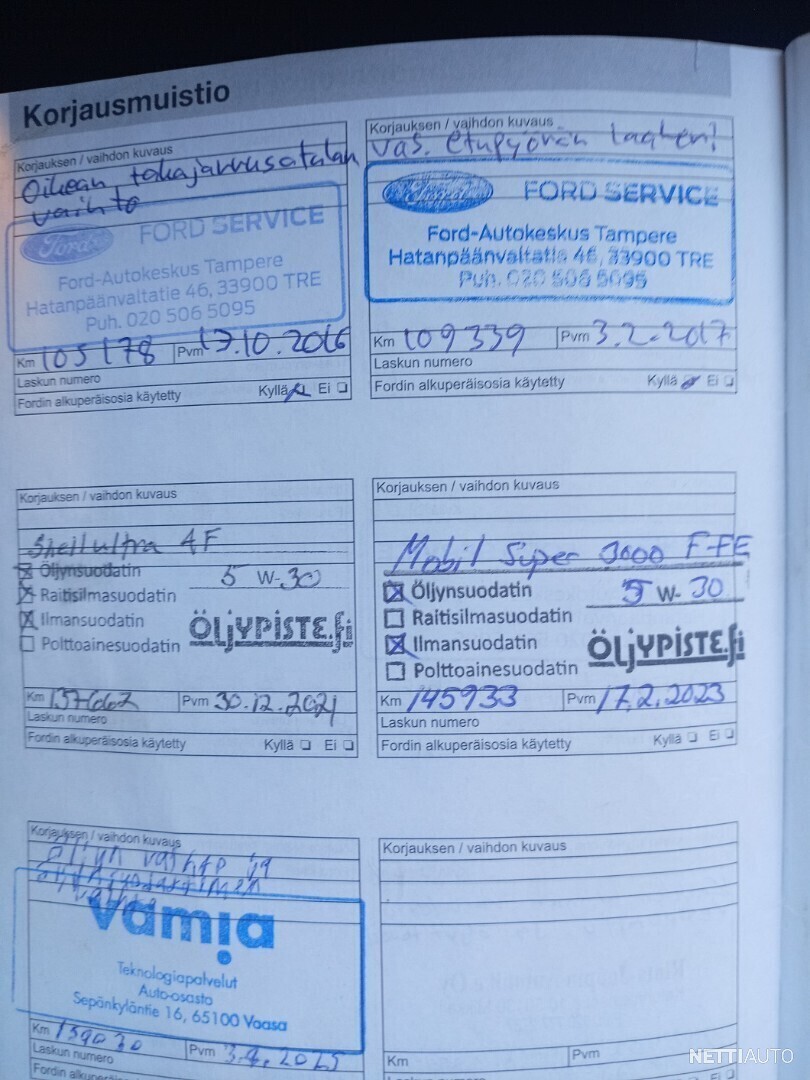 Korjausmuistio
Korjauksen / vaihdon kuvaus
Oikean takajarrusatulan
vaihto
Ford
FORD SERVICE
Ford-Autokeskus Tampere
Hatanpäänvaltatie 46, 33900 TRE
Puh. 020 506 5095
Km 105178 Pvm 17.10.2016
Laskun numero
Fordin alkuperäisosia käytetty Kyllä Ei
Korjauksen / vaihdon kuvaus
Vas. etupyörän laakeri
Ford
FORD SERVICE
Ford-Autokeskus Tampere
Hatanpäänvaltatie 46, 33900 TRE
Puh. 020 506 5095
Km 109339 Pvm 3.2.2017
Laskun numero
Fordin alkuperäisosia käytetty Kyllä Ei
Korjauksen / vaihdon kuvaus
Shell ultra AF
Öljynsuodatin 5 W-30
Raitisilmasuodatin
Ilmansuodatin
Polttoainesuodatin
ÖLJYPISTE.fi
Km 137662 Pvm 30.12.2021
Laskun numero
Fordin alkuperäisosia käytetty Kyllä Ei
Korjauksen / vaihdon kuvaus
Mobil Super 3000 F-FE
Öljynsuodatin 5 W-30
Raitisilmasuodatin
Ilmansuodatin
Polttoainesuodatin
ÖLJYPISTE.fi
Km 145933 Pvm 17.2.2023
Laskun numero
Fordin alkuperäisosia käytetty Kyllä Ei
Korjauksen / vaihdon kuvaus
öljyn vaihto ja
vamia
Teknologiapalvelut
Auto-osasto
Sepänkyläntie 16, 65100 Vaasa
Km 159030 Pvm 3.4.2025
Laskun numero
Korjauksen / vaihdon kuvaus
Km Pvm
NETTIAUTO